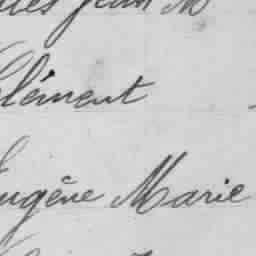 Jean M
Clément
Eugène Marie